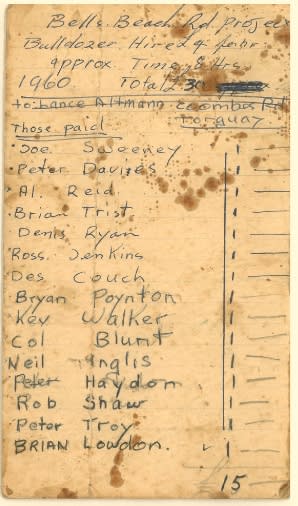 Bells Beach Rd. Project
Bulldozer Hired 4 hour.
approx. Time 8 Hrs
1960 Total £30
to: Lance Altmann Coombe Rd
Torquay
Those paid
Joe Sweeney 1
Peter Davies 1
Al. Reid 1
Brian Trist 1
Denis Ryan 1
Ross. Jenkins 1
Des Couch 1
Bryan Poynton 1
Kev Walker 1
Col Blunt 1
Neil Inglis 1
Peter Haydon 1
Rob Shaw 1
Peter Troy 1
BRIAN Lowdon. ✓ 1
15